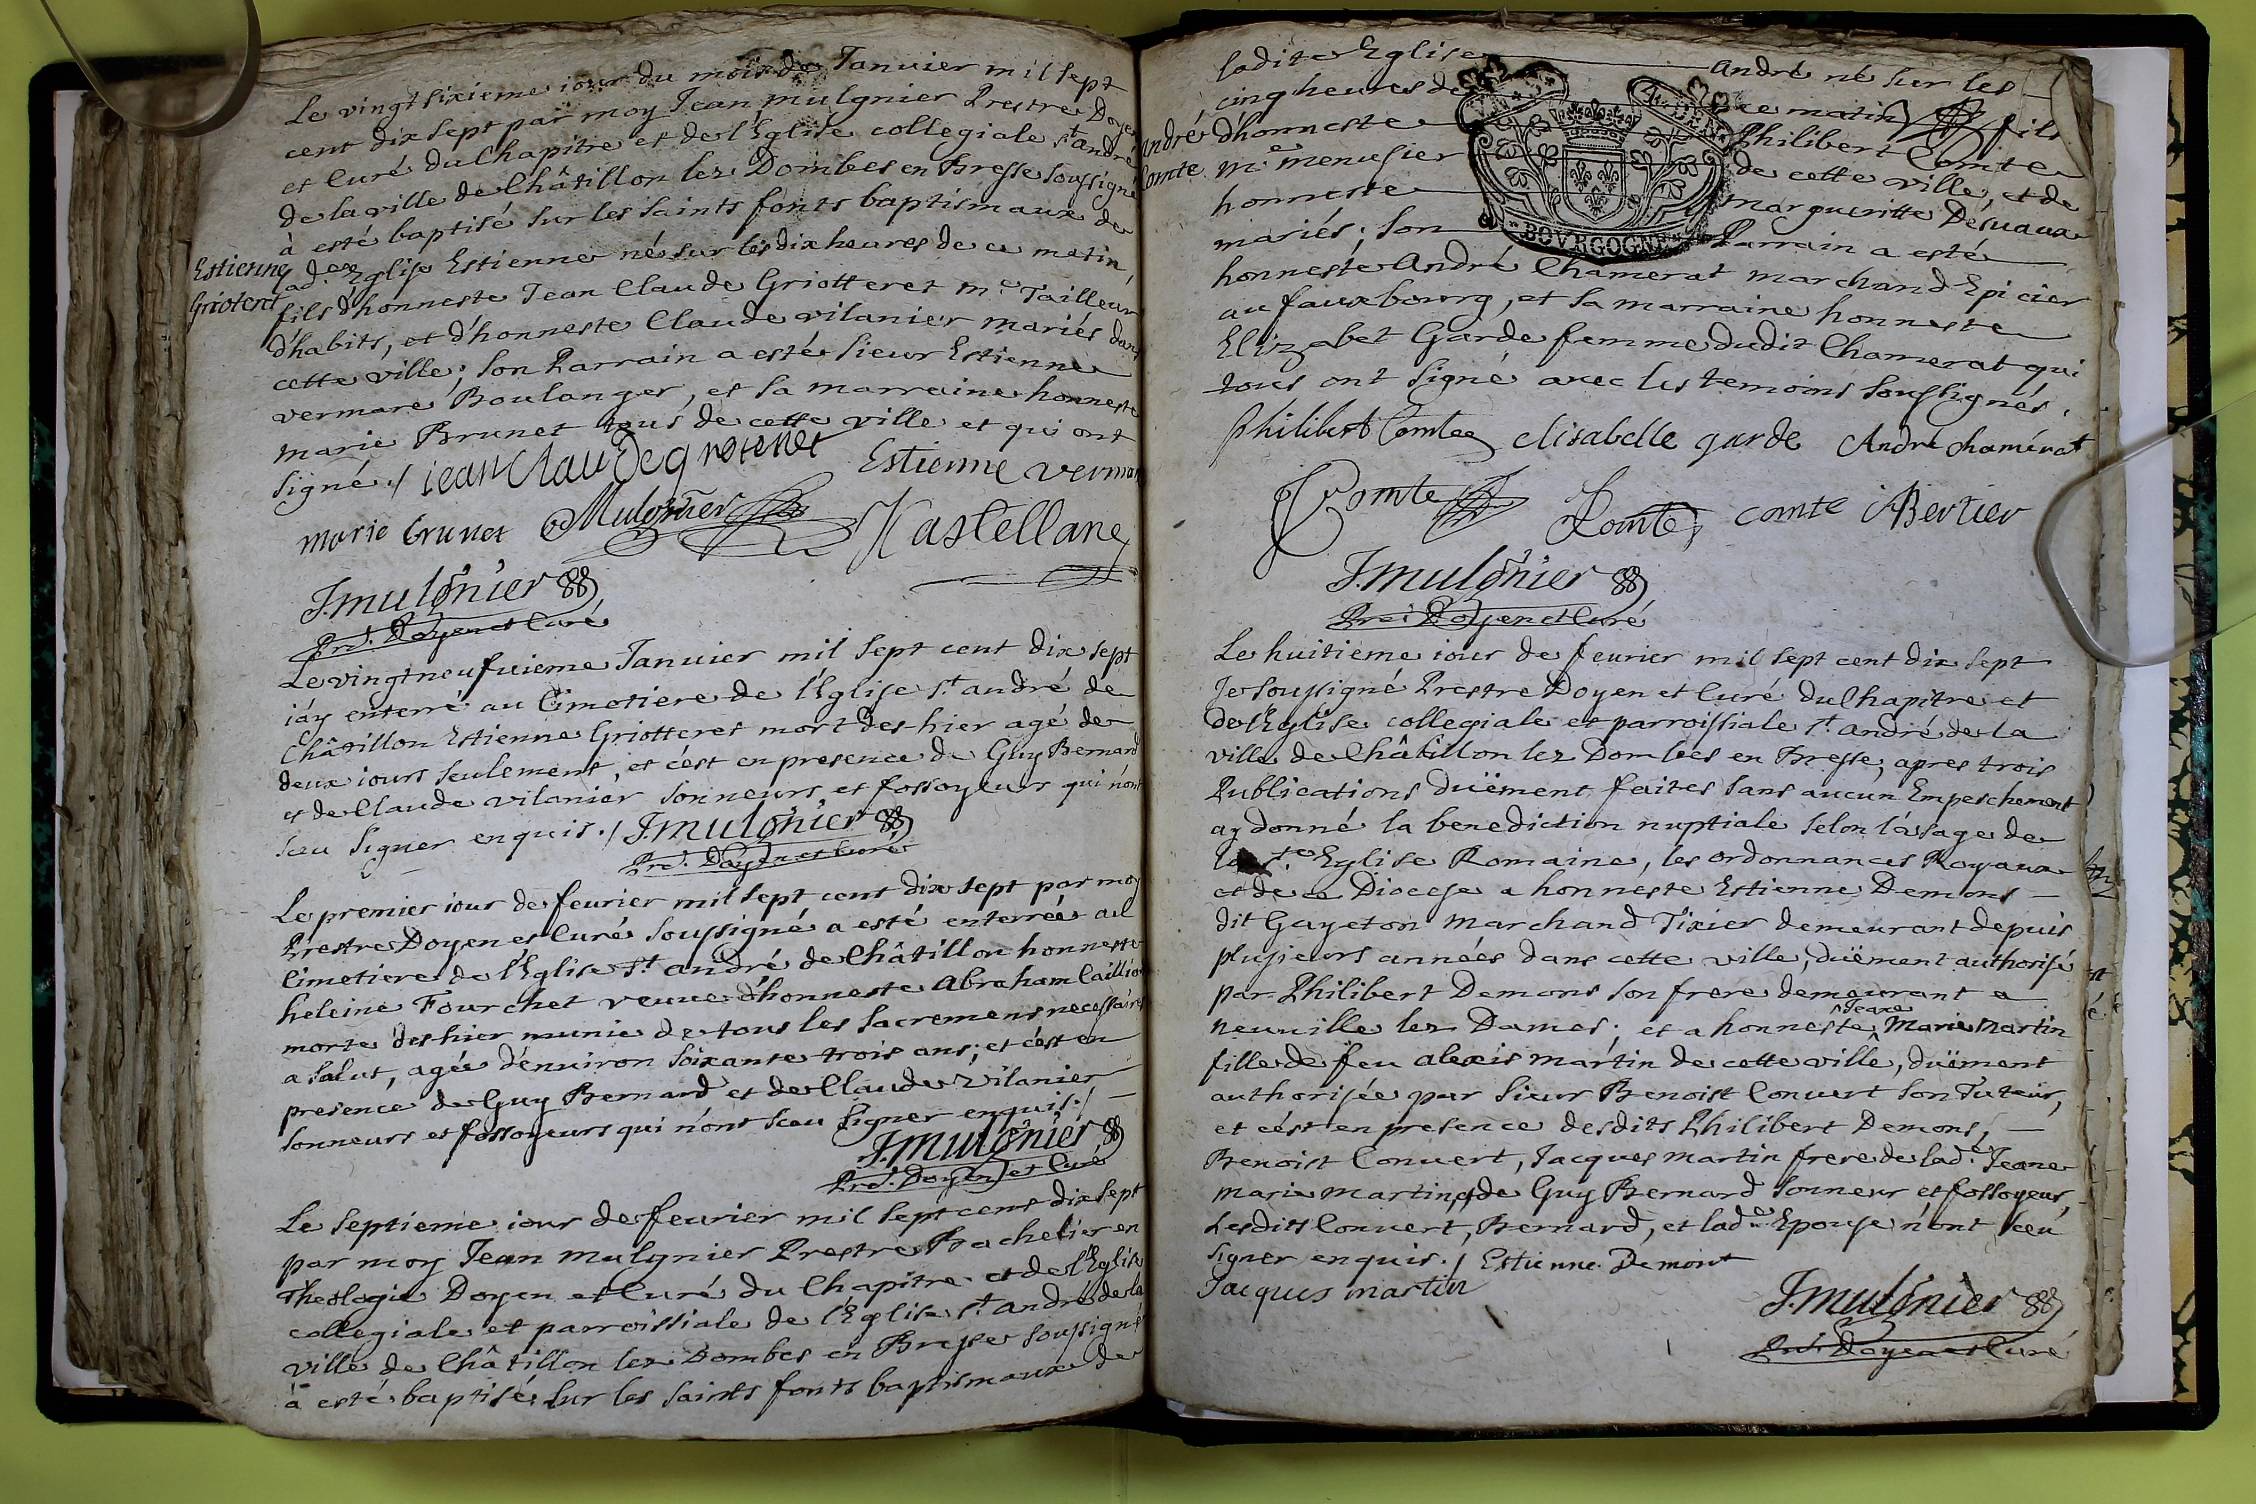 Le vingt sixieme iour du mois de Ianuier mil sept
cent dix sept par moy Iean mulgnier Prestre Doyen
et Curé du Chapitre et de l'Eglise collegiale st andré
de la ville de Châtillon lez Dombes en Bresse soussigné
à esté baptisé sur les saints fonts baptismaux de
Estienne
Grioteret
lad.e Eglise Estienne né sur les dix heures de ce matin,
fils d'honneste Jean Claude Griotteret m.e Tailleur
d'habits, et d'honneste Claude vilanier mariés dans
cette ville; son Parrain a esté sieur Estienne
vermare Boulanger, et sa marraine honneste
marie Brunet tous de cette ville et qui ont
signé./ iean Claude grioteret Estienne vermare
marie brunet Mulgnier Kastellane
J. mulgnier
Pre. Doyen et Curé
Le vingt neufuieme Ianuier mil sept cent dix sept
i'ay enterré au Cimetiere de l'Eglise st andré de
Châtillon Estienne Griotteret mort des-hier agé de
deux iours seulement, et c'est en presence de Guy Bernard
et de Claude vilanier sonneurs et fossoyeurs qui n'ont
sceu signer enquis./ J. mulgnier
Pre. Doyen et Curé
Le premier iour de feurier mil sept cent dix sept par moy
Prestre Doyen et Curé soussigné a esté enterrée au
Cimetiere de l'Eglise st andré de Châtillon honneste
heleine Fourchet veuue d'honneste Abraham Caillion
morte des-hier munie de tous les sacremens necessaires
a salut, agée d'enuiron soixante trois ans; et c'est en
presence de Guy Bernard et de Claude Vilanier
sonneurs et fossoyeurs qui n'ont sceu signer enquis./
J. mulgnier
Pre. Doyen et Curé
Le septieme iour de feurier mil sept cent dix sept
par moy Iean mulgnier Prestre Bachelier en
Theologie Doyen et Curé du Chapitre et de l'Eglise
collegiale et parroissiale de l'Eglise st andré de la
ville de Châtillon lez Dombes en Bresse soussigné
à esté baptisé sur les saints fonts baptismaux de
ladite Eglise andré né sur les
André
Comte
cinq heures de ce matin fils
d'honneste Philibert Comte
m.e menusier de cette ville, et de
honneste margueritte Désuaux
mariés; son Parrain a esté
BOVRGOGNE
honneste André Chamerat marchand Epicier
au fauxbourg, et sa marraine honneste
Elizabet Garde femme dudit Chamerat qui
tous ont signé avec les temoins soussignés.
philibert Comte elisabelle garde André chamérat
Comte Comte comte Bertier
J. mulgnier
Pre. Doyen et Curé
Le huitieme iour de feurier mil sept cent dix sept
Je soussigné Prestre Doyen et Curé du Chapitre et
de l'Eglise collegiale et parroissiale st. andré de la
ville de Châtillon lez Dombes en Bresse, apres trois
Publications duëment faites sans aucun Empeschement
ay donné la benediction nuptiale selon l'usage de
la s.te Eglise Romaine, les ordonnances Royaux
et de ce Diocese a honneste Estienne Demons
dit Gayeton marchand Tixier demeurant depuis
plusieurs années dans cette ville, duëment authorisé
par Philibert Demons son frere demeurant a
neuuille lez Dames; et a honneste ^Jeane Marie Martin
fille de feu alexis martin de cette ville, duëment
authorisée par sieur Benoist Conuert son Tuteur,
et c'est en presence desdits Philibert Demons,
Benoist Conuert, Jacques martin frere de lad.e Jeane
marie martin, et de Guy Bernard sonneur et fossoyeur
Lesdits Conuert, Bernard, et lad.e Epouse n'ont sceu
signer enquis./ Estienne Demont
Jacques martin
J. mulgnier
Pre. Doyen et Curé